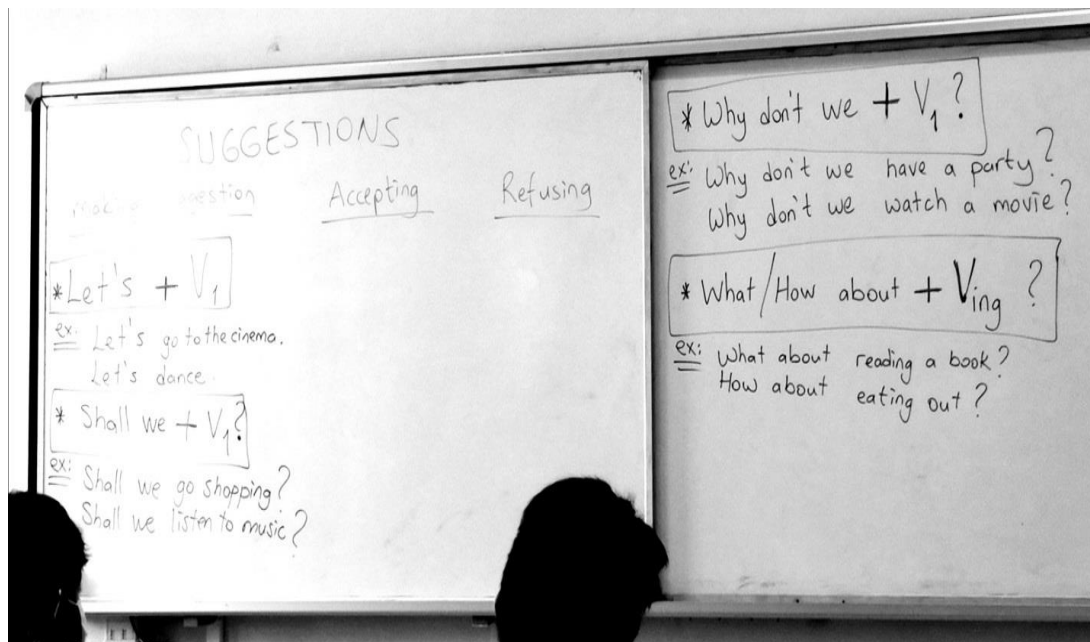 SUGGESTIONS
making gestion Accepting Refusing
*Let's + V1
ex: Let's go to the cinema.
Let's dance.
* Shall we + V1?
ex: Shall we go shopping?
Shall we listen to music?
* Why don't we + V1?
ex: Why don't we have a party?
Why don't we watch a movie?
* What/How about + Ving ?
ex: What about reading a book?
How about eating out?